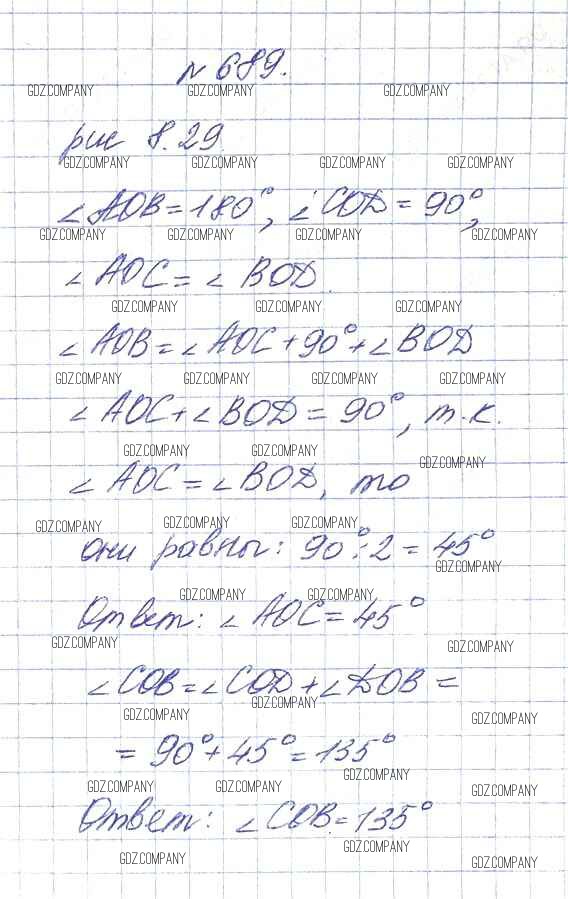 № 689.
GDZ.COMPANY GDZ.COMPANY GDZ.COMPANY
рис 8.29
GDZ.COMPANY GDZ.COMPANY GDZ.COMPANY GDZ.COMPANY
∠AOB = 180°, ∠COD = 90°,
GDZ.COMPANY GDZ.COMPANY GDZ.COMPANY GDZ.COMPANY
∠AOC = ∠BOD.
GDZ.COMPANY GDZ.COMPANY GDZ.COMPANY
∠AOB = ∠AOC + 90° + ∠BOD
GDZ.COMPANY GDZ.COMPANY GDZ.COMPANY GDZ.COMPANY
∠AOC + ∠BOD = 90°, т.к.
GDZ.COMPANY GDZ.COMPANY GDZ.COMPANY
∠AOC = ∠BOD, то
GDZ.COMPANY GDZ.COMPANY GDZ.COMPANY
они равны: 90° : 2 = 45°
GDZ.COMPANY
GDZ.COMPANY GDZ.COMPANY
Ответ: ∠AOC = 45°
GDZ.COMPANY GDZ.COMPANY
∠COB = ∠COD + ∠DOB =
GDZ.COMPANY
GDZ.COMPANY GDZ.COMPANY
= 90° + 45° = 135°
GDZ.COMPANY
GDZ.COMPANY GDZ.COMPANY GDZ.COMPANY
Ответ: ∠COB = 135°
GDZ.COMPANY GDZ.COMPANY GDZ.COMPANY